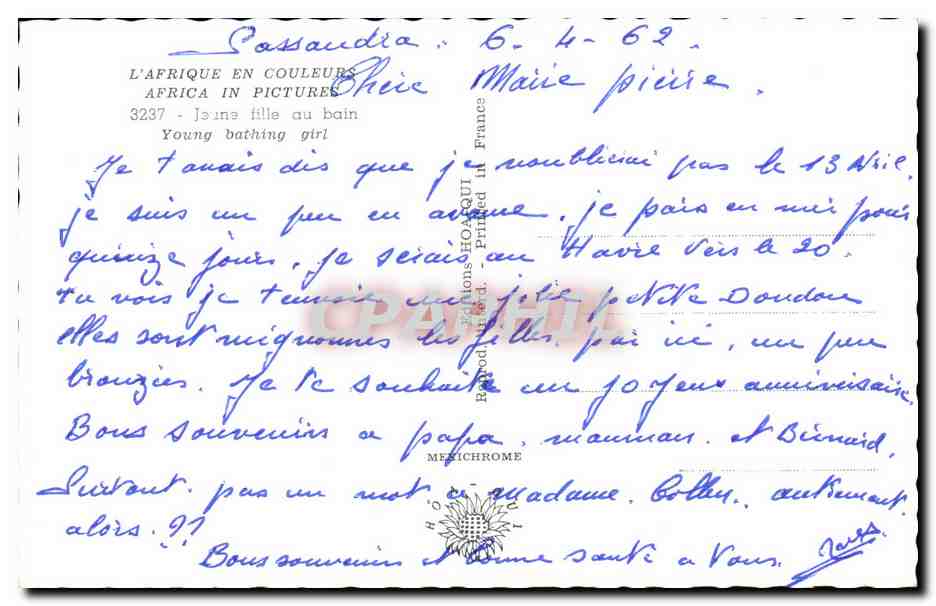 Sassandra. 6-4-62.
L'AFRIQUE EN COULEURS
AFRICA IN PICTURES
3237 - Jeune fille au bain
Young bathing girl
Chère Marie pierre.
Je t'avais dis que je n'oublierai pas le 13 Avril.
je suis un peu en avance, je pars en mer pour
quinze jours, je serais au Havre vers le 20.
tu vois je t'envoie une jolie petite Doudou
elles sont mignonnes les filles par ici, un peu
bronzées. Je te souhaite un joyeux anniversaire.
Bons souvenirs a papa, maman. et Bernard,
Surtout. pas un mot a madame. autrement.
alors. ??
Bons souvenirs et bonne santé a Vous.
Editions HOA-QUI
Reprod. interd. - Printed in France
MEXICHROME
HOA-QUI
CPAPHIL